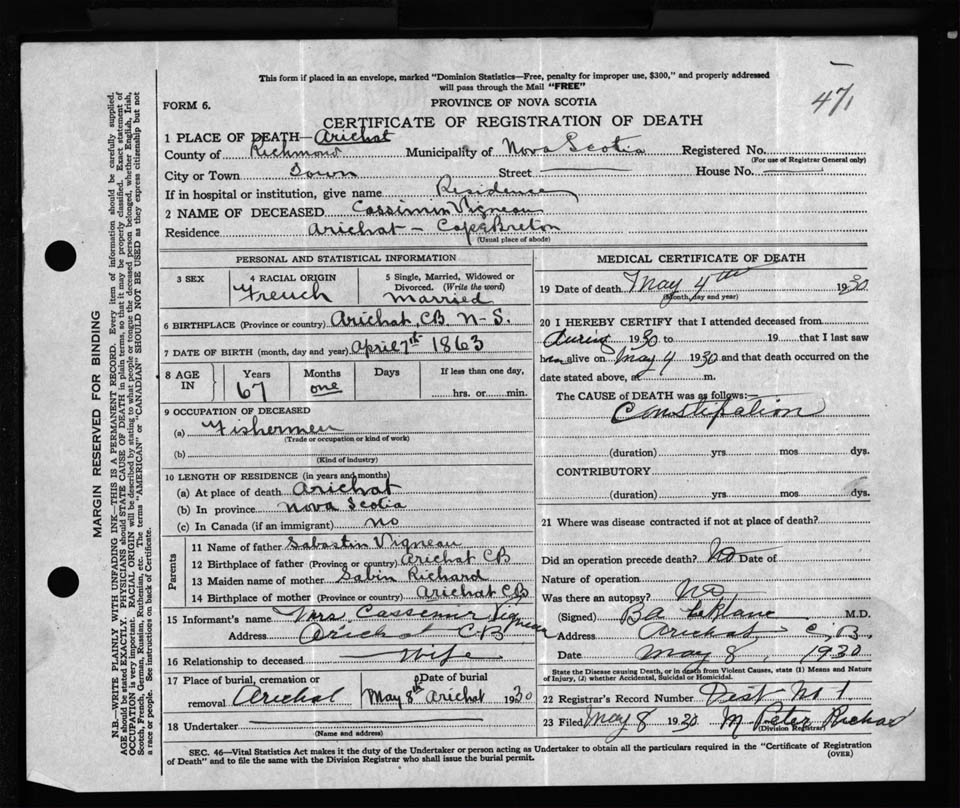 This form if placed in an envelope, marked "Dominion Statistics—Free, penalty for improper use, $300," and properly addressed
will pass through the Mail "FREE"
471
FORM 6.
PROVINCE OF NOVA SCOTIA
CERTIFICATE OF REGISTRATION OF DEATH
1 PLACE OF DEATH—Arichat
County of Richmond Municipality of Nova Scotia Registered No.
(For use of Registrar General only)
City or Town Town Street House No.
If in hospital or institution, give name Residence
2 NAME OF DECEASED Cassimin Vigneau
Residence Arichat - Cape Breton
(Usual place of abode)
PERSONAL AND STATISTICAL INFORMATION
3 SEX
4 RACIAL ORIGIN
French
5 Single, Married, Widowed or
Divorced. (Write the word)
Married
6 BIRTHPLACE (Province or country) Arichat, CB N-S.
7 DATE OF BIRTH (month, day and year) April 7th 1863
8 AGE IN
Years 67
Months one
Days
If less than one day,
hrs. or min.
9 OCCUPATION OF DECEASED
(a) Fishermen
(Trade or occupation or kind of work)
(b)
(Kind of industry)
10 LENGTH OF RESIDENCE (in years and months)
(a) At place of death Arichat
(b) In province Nova Scotia
(c) In Canada (if an immigrant) no
Parents
11 Name of father Sabastin Vigneau
12 Birthplace of father (Province or country) Arichat CB
13 Maiden name of mother Sabin Richard
14 Birthplace of mother (Province or country) Arichat CB
15 Informant's name Mrs. Cassemir Vigneau
Address Arichat CB
16 Relationship to deceased Wife
17 Place of burial, cremation or
removal Arichat
Date of burial
May 8th Arichat 1930
18 Undertaker
(Name and address)
MEDICAL CERTIFICATE OF DEATH
19 Date of death May 4th 1930
(Month, day and year)
20 I HEREBY CERTIFY that I attended deceased from
during 1930 to 19 that I last saw
him alive on May 4 1930 and that death occurred on the
date stated above, at m.
The CAUSE of DEATH was as follows:—
Constipation
(duration) yrs. mos. dys.
CONTRIBUTORY
(duration) yrs. mos. dys.
21 Where was disease contracted if not at place of death?
Did an operation precede death? No Date of
Nature of operation
Was there an autopsy? No
(Signed) BA LeBlanc M.D.
Address Arichat, C.B.
Date May 8, 1930
State the Disease causing Death, or in death from Violent Causes, state (1) Means and Nature
of Injury, (2) whether Accidental, Suicidal or Homicidal.
22 Registrar's Record Number Dist No 1
23 Filed May 8 1930 M Peter Richard
(Division Registrar)
SEC. 46—Vital Statistics Act makes it the duty of the Undertaker or person acting as Undertaker to obtain all the particulars required in the "Certificate of Registration
of Death" and to file the same with the Division Registrar who shall issue the burial permit.
(OVER)
MARGIN RESERVED FOR BINDING
N.B.—WRITE PLAINLY WITH UNFADING INK—THIS IS A PERMANENT RECORD. Every item of information should be carefully supplied.
AGE should be stated EXACTLY. PHYSICIANS should STATE CAUSE OF DEATH in plain terms, so that it may be properly classified. Exact statement of
OCCUPATION is very important. RACIAL ORIGIN will be described by stating to what people or tongue the deceased person belonged, whether English, Irish,
Scotch, French, German, Russian, Ruthenian, etc. The terms "AMERICAN" or "CANADIAN" SHOULD NOT BE USED as they express citizenship but not
a race or people. See instructions on back of Certificate.